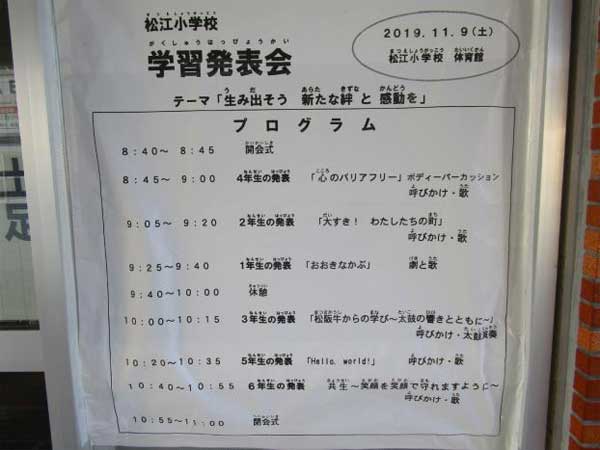 松江小学校
まつえしょうがっこう
学習発表会
がくしゅうはっぴょうかい
2019.11.9(土)
松江小学校 体育館
まつえしょうがっこう たいいくかん
テーマ「生み出そう 新たな絆 と 感動を」
プログラム
8:40～ 8:45 開会式
8:45～ 9:00 4年生の発表 「心のバリアフリー」ボディーパーカッション
呼びかけ・歌
9:05～ 9:20 2年生の発表 「大すき! わたしたちの町」
呼びかけ・歌
9:25～9:40 1年生の発表 「おおきなかぶ」 劇と歌
9:40～10:00 休憩
10:00～10:15 3年生の発表 「松阪牛からの学び～太鼓の響きとともに～」
呼びかけ・太鼓演奏
10:20～10:35 5年生の発表 「Hello, world!」 呼びかけ・歌
10:40～10:55 6年生の発表 共生～笑顔を笑顔で守れますように～
呼びかけ・歌
10:55～11:00 閉会式